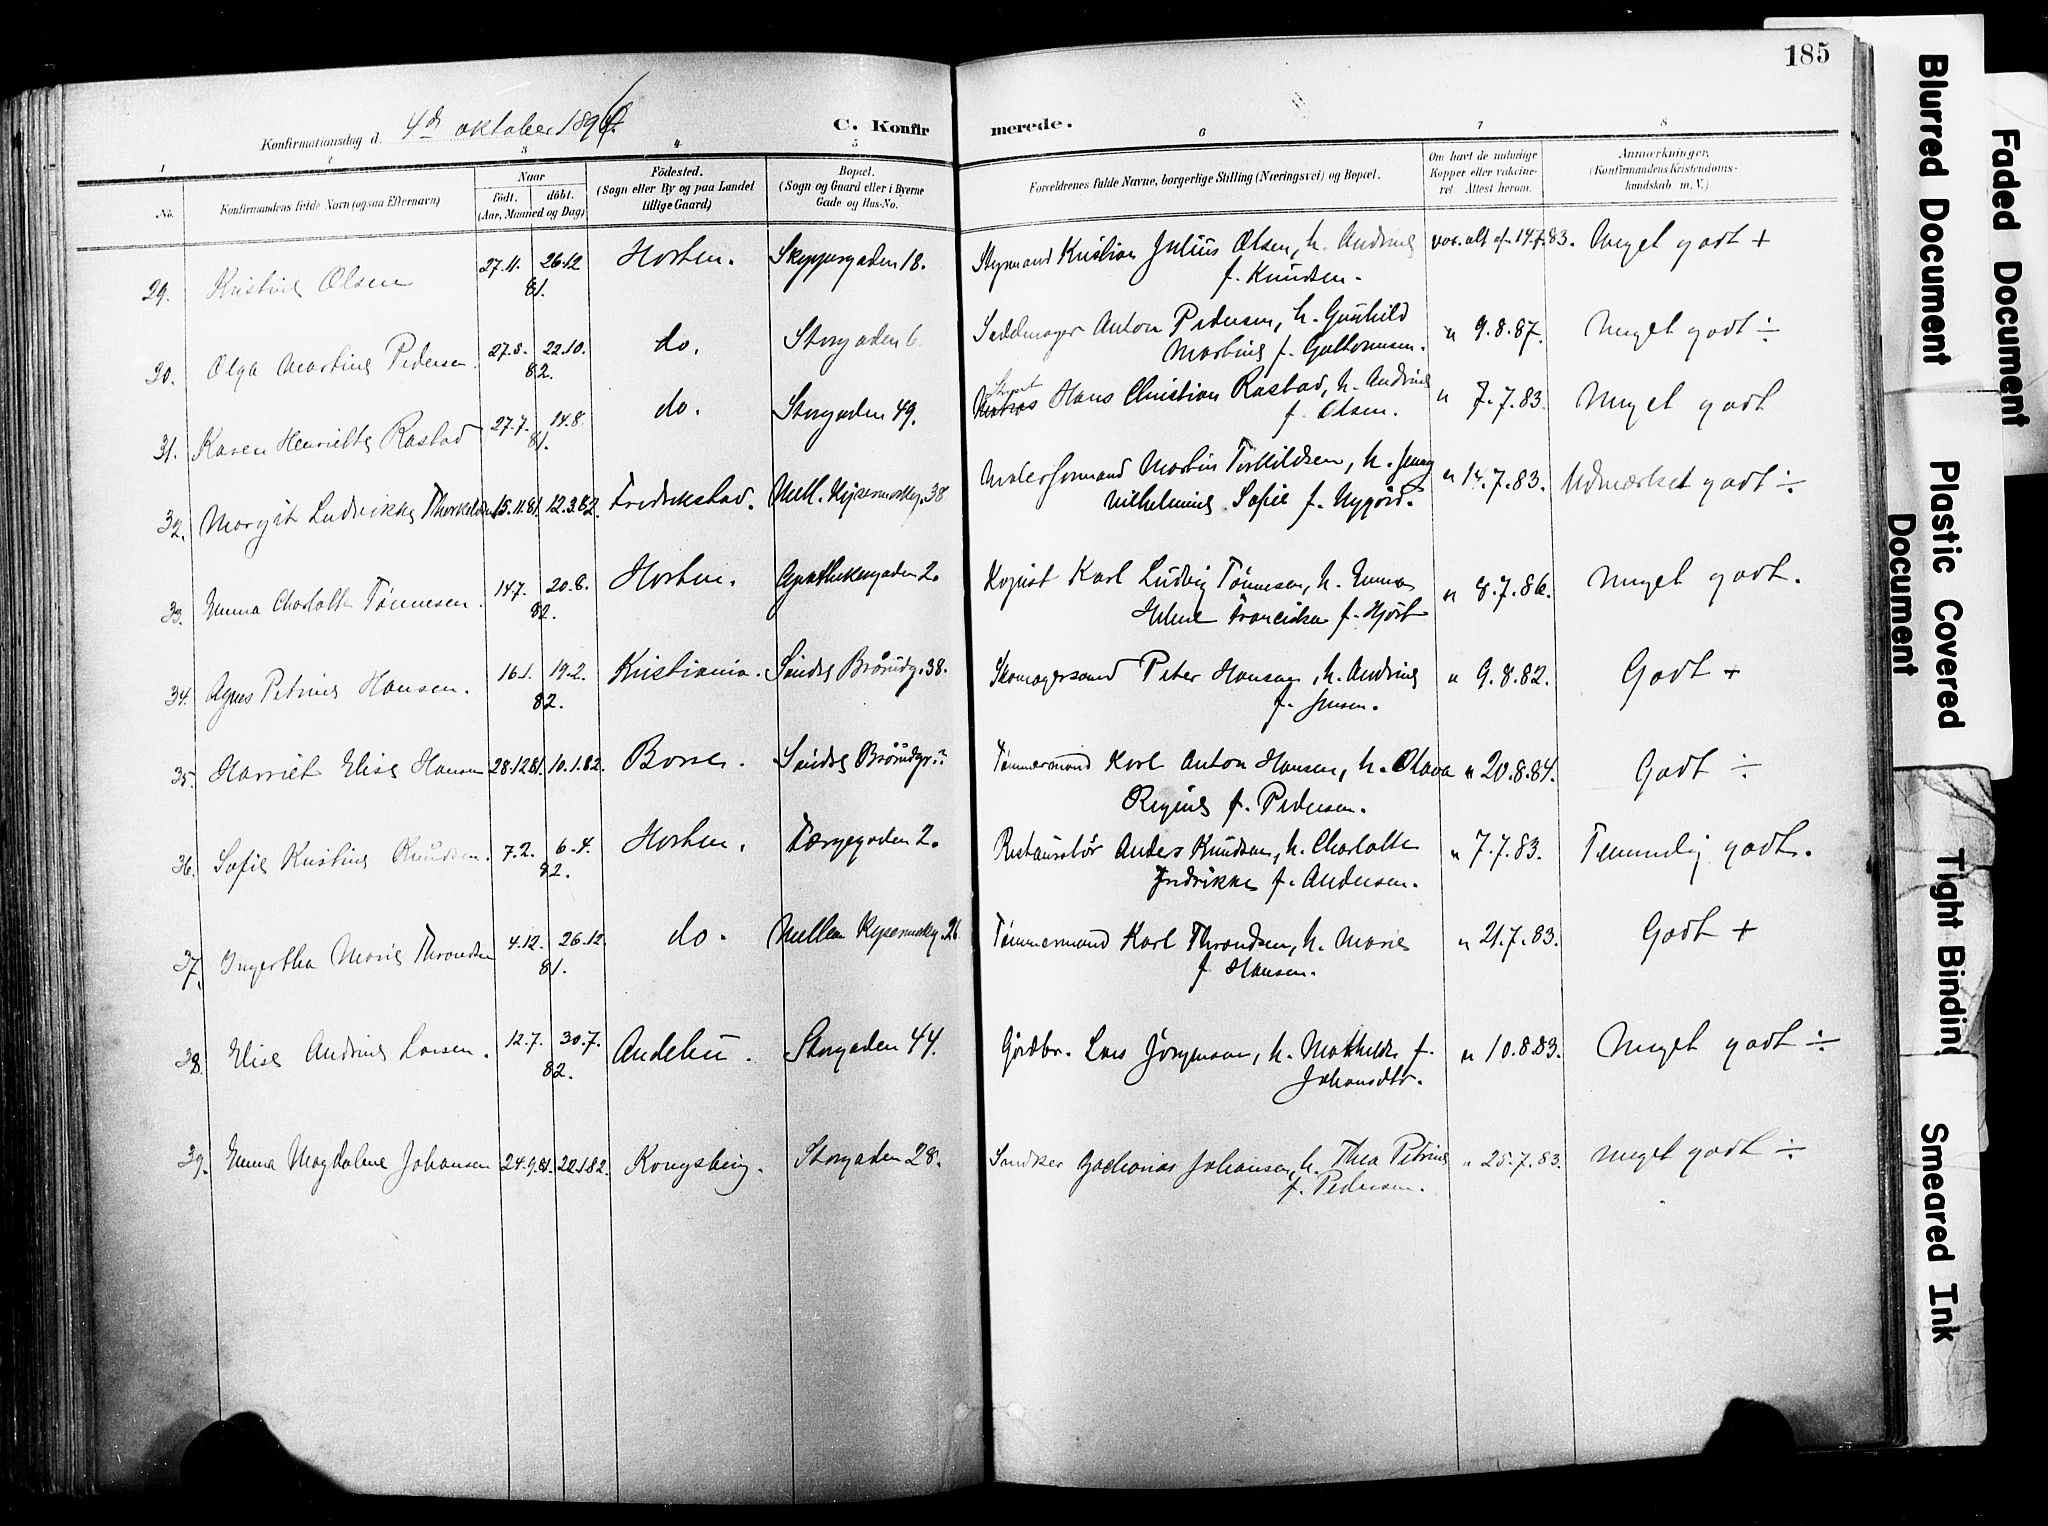 185
Konfirmationsdag d. 4de oktober 1896.
C. Konfirmerede.
1 2 3 4 5 6 7 8
No.
Konfirmandens fulde Navn (ogsaa Efternavn)
Naar
født. døbt.
(Aar, Maaned og Dag)
Fødested.
(Sogn eller By og paa Landet
tillige Gaard)
Bopæl.
(Sogn og Gaard eller i Byerne
Gade og Hus-No.
Forældrenes fulde Navne, borgerlige Stilling (Næringsvei) og Bopæl.
Om havt de naturlige
Kopper eller vakcine-
ret. Attest herom.
Anmærkninger.
(Konfirmandens Kristendoms-
kundskab m. V.)
29. Kristine Olsen 27.11. 26.12 81. Horten. Skippergaden 18. Styrmand Kristian Julius Olsen, h. Andrine vac. att af 14.7.83. Meget godt +
f. Knudsen.
30. Olga Martine Pedersen. 27.5. 22.10. 82. do. Storgaden 6. Sadelmager Anton Pedersen, h. Gunhild " 9.8.87. Meget godt ÷
Martine f. Guttormsen.
31. Karen Henriette Rastad 27.7. 14.8. 81. do. Storgaden 49. Matros Hans Christian Rastad, h. Andrine " 7.7.83. Meget godt
f. Olsen.
32. Margit Ludvikke Thorkildsen 15.11.81. 12.3.82. Fredrikstad. Mell. Kejsemarkg. 38 Underformand Martin Torkildsen, h. Jenny " 14.7.83. Udmærket godt ÷
Vilhelmine Sofie f. Nygård.
33. Emma Charlotte Tønnesen. 14.7. 20.8. 82. Horten. Apothekergaden 2. Kopist Karl Ludvig Tønnesen, h. Emma " 8.7.86. Meget godt.
Helene Franciska f. Hjört
34. Agnes Petrine Hansen. 16.1. 19.2. 82. Kristiania. Söndre Bråndg. 38. Skomagersvend Peter Hansen, h. Andrine " 9.8.82. Godt +
f. Jensen.
35. Harriet Elise Hansen 28.12.81. 10.1.82. Borre. Söndre Tømmermand Karl Anton Hansen, h. Olava " 20.8.84. Godt ÷
Regine f. Pedersen.
36. Sofie Kristine Knudsen. 7.2. 6.4. 82. Horten. Færgegaden 2. Restauratör Anders Knudsen, h. Charlotte " 7.7.83. Temmelig godt.
Fredrikke f. Andersen.
37. Ingertha Marie Throndsen 4.12. 26.12. 81. do. Mellem Kejsemarkg. 26 Tømmermand Karl Throndsen, h. Marie " 21.7.83. Godt +
f. Hansen.
38. Elise Andrine Larsen. 12.7. 30.7. 82. Andebu. Storgaden 44. Gårdbr. Lars Jörgensen, h. Mathilde f. " 10.8.83. Meget godt ÷
Johansdtr.
39. Emma Magdalene Johansen 24.9.81. 22.1.82. Kongsberg. Storgaden 28. Snedker Zacharias Johansen, h. Thea Petrine " 25.7.83. Meget godt ÷
f. Pedersen.
Blurred Document
Faded Document
Plastic Covered
Document
Tight Binding
Smeared Ink